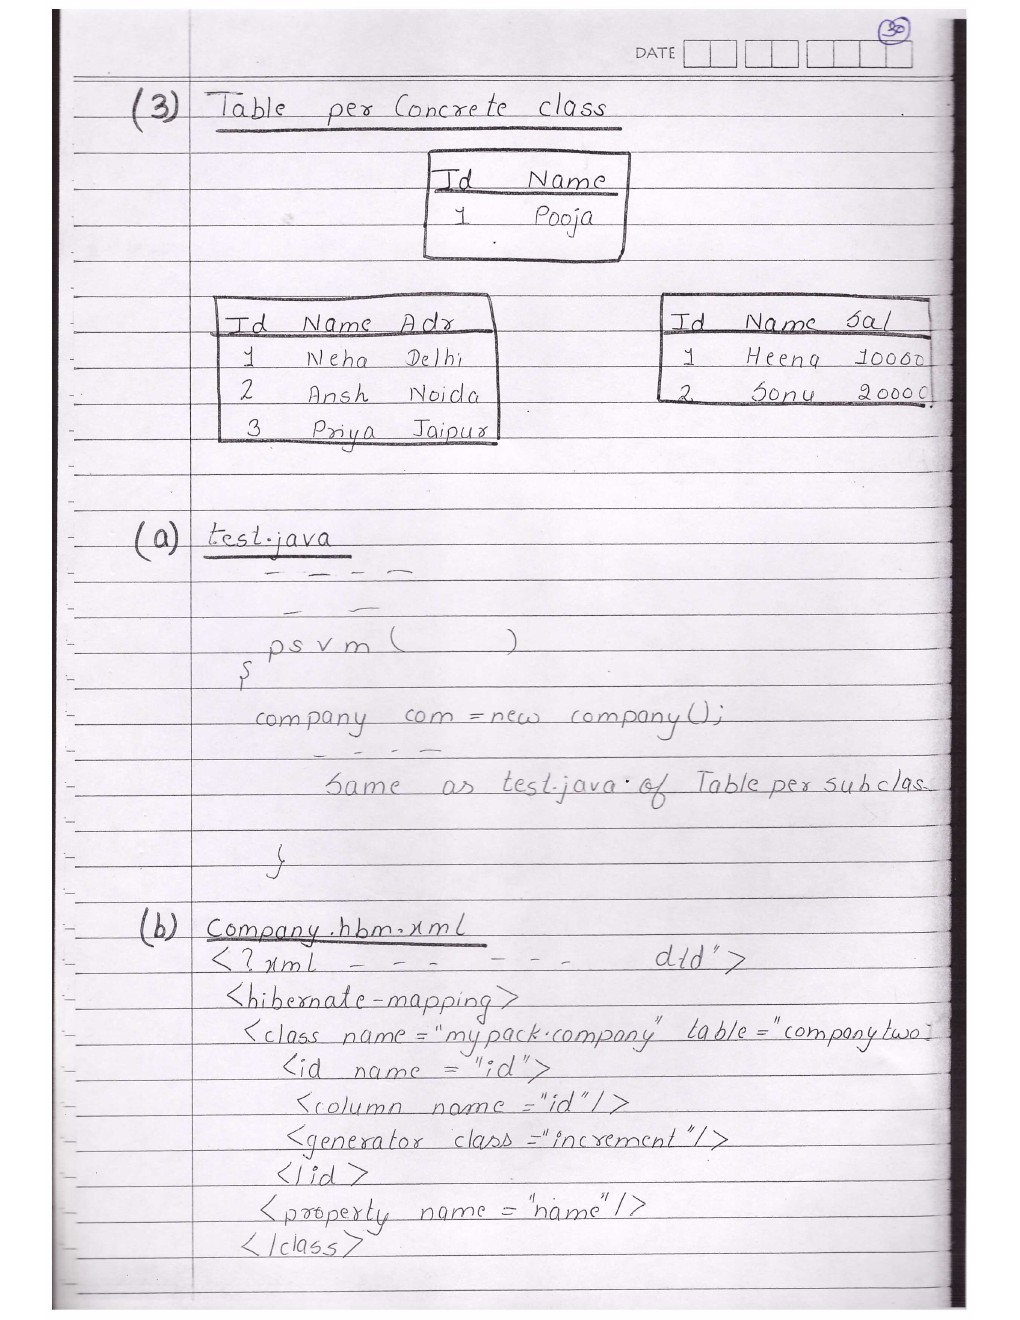 30
DATE
(3) Table per Concrete class
Id Name
1 Pooja
Id Name Adr
1 Neha Delhi
2 Ansh Noida
3 Priya Jaipur
Id Name Sal
1 Heena 10000
2 Sonu 20000
(a) test.java
psvm ( )
{
company com = new company();
Same as test.java of Table per subclas
}
(b) Company.hbm.xml
<?xml - - - - - - dtd">
<hibernate-mapping>
<class name="mypack.company" table="companytwo
<id name = "id">
<column name="id"/>
<generator class="increment"/>
</id>
<property name = "name"/>
</class>